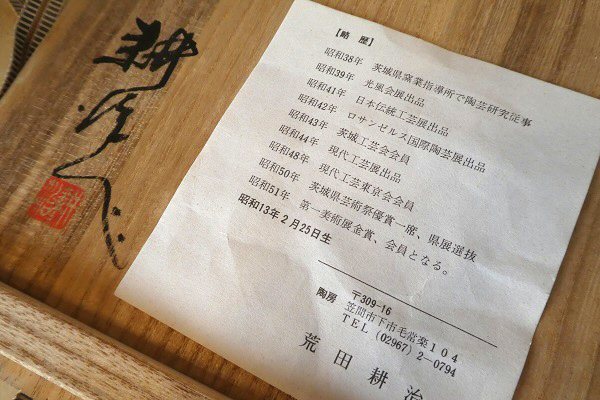 【略歴】
昭和38年 茨城県窯業指導所で陶芸研究従事
昭和39年 光風会展出品
昭和41年 日本伝統工芸展出品
昭和42年 ロサンゼルス国際陶芸展出品
昭和43年 茨城工芸会会員
昭和44年 現代工芸展出品
昭和48年 現代工芸東京会会員
昭和50年 茨城県芸術祭優賞一席、県展選抜
昭和51年 第一美術展金賞、会員となる。
昭和13年2月25日生
陶房 〒309-16
笠間市下市毛常楽104
TEL (02967) 2-0794
荒田耕治